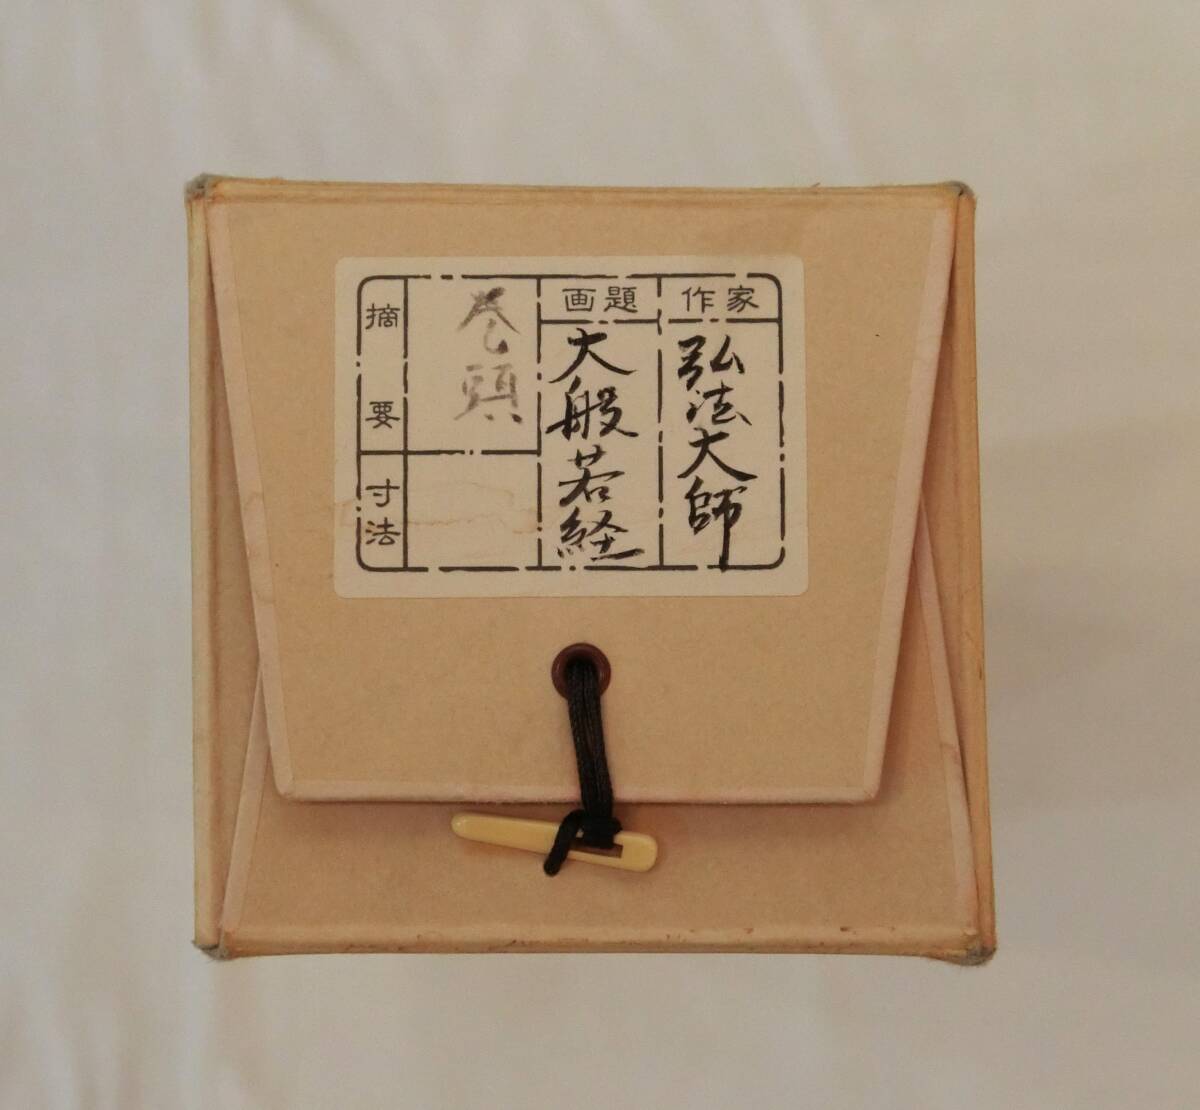 作家
弘法大師
画題
大般若経
巻頭
摘要
寸法